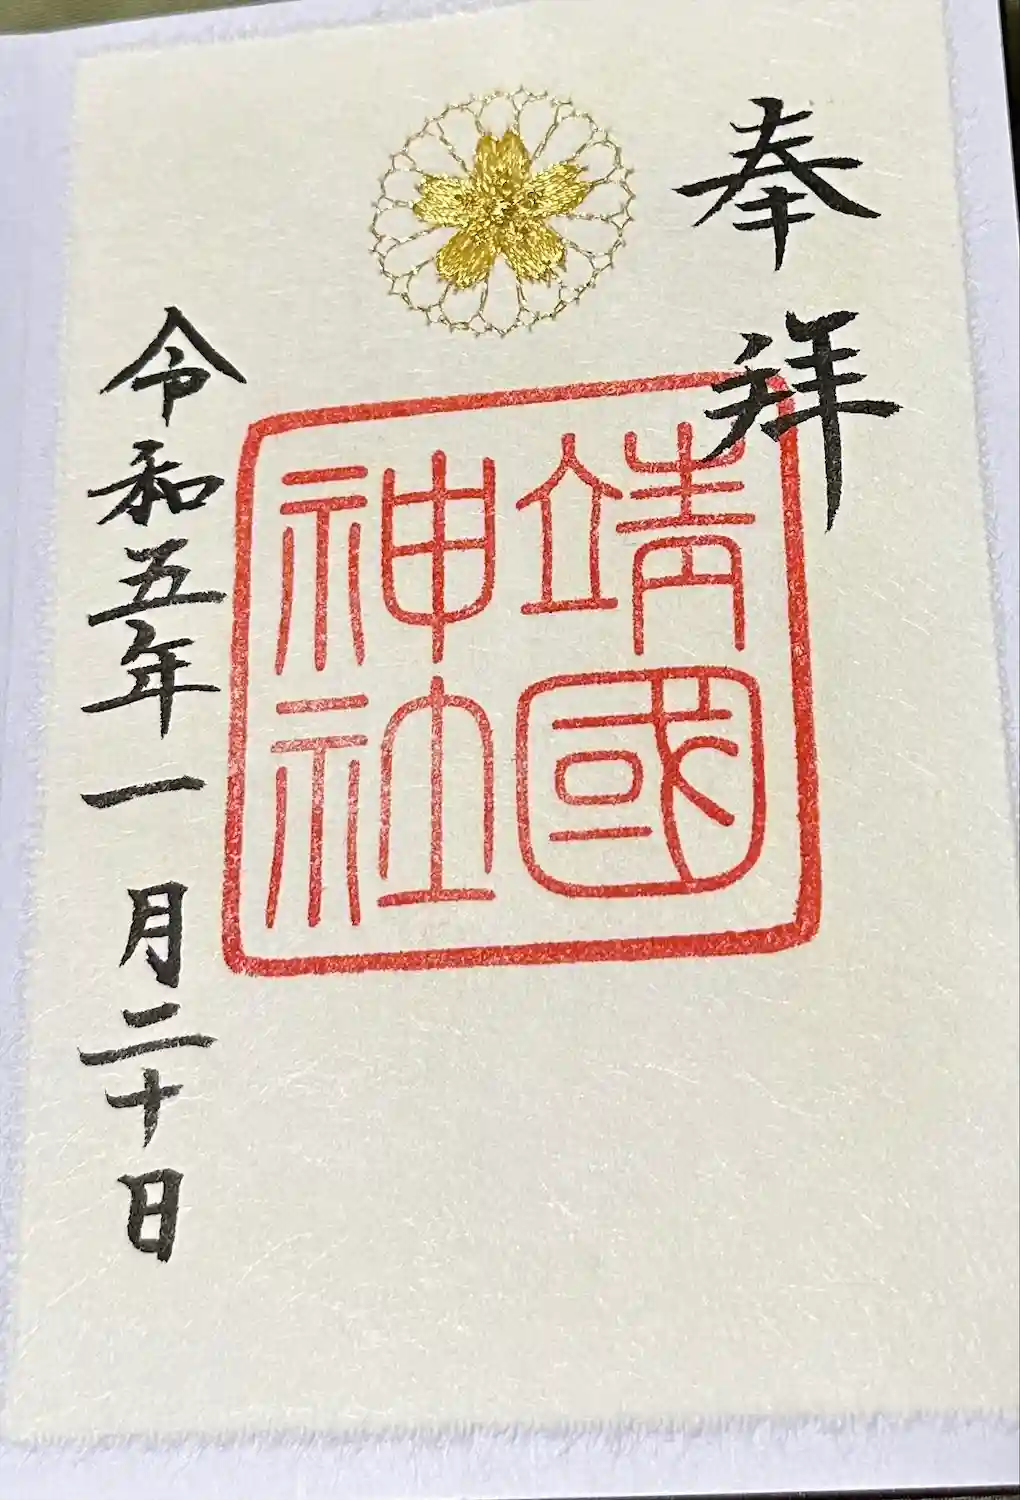 奉拜
靖國
神社
令和五年一月二十日